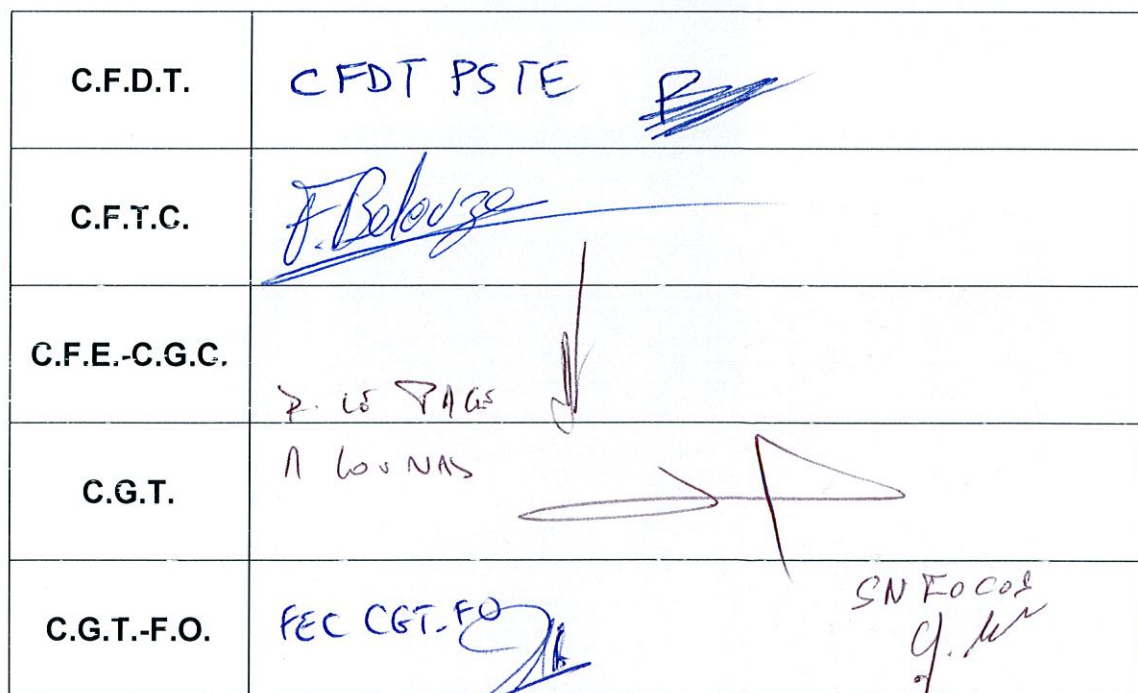 C.F.D.T. CFDT PSTE
C.F.T.C. F. Belouze
C.F.E.-C.G.C.
LE PAGE
C.G.T. LOUNAS
C.G.T.-F.O. FEC CGT-FO SNFOCOS